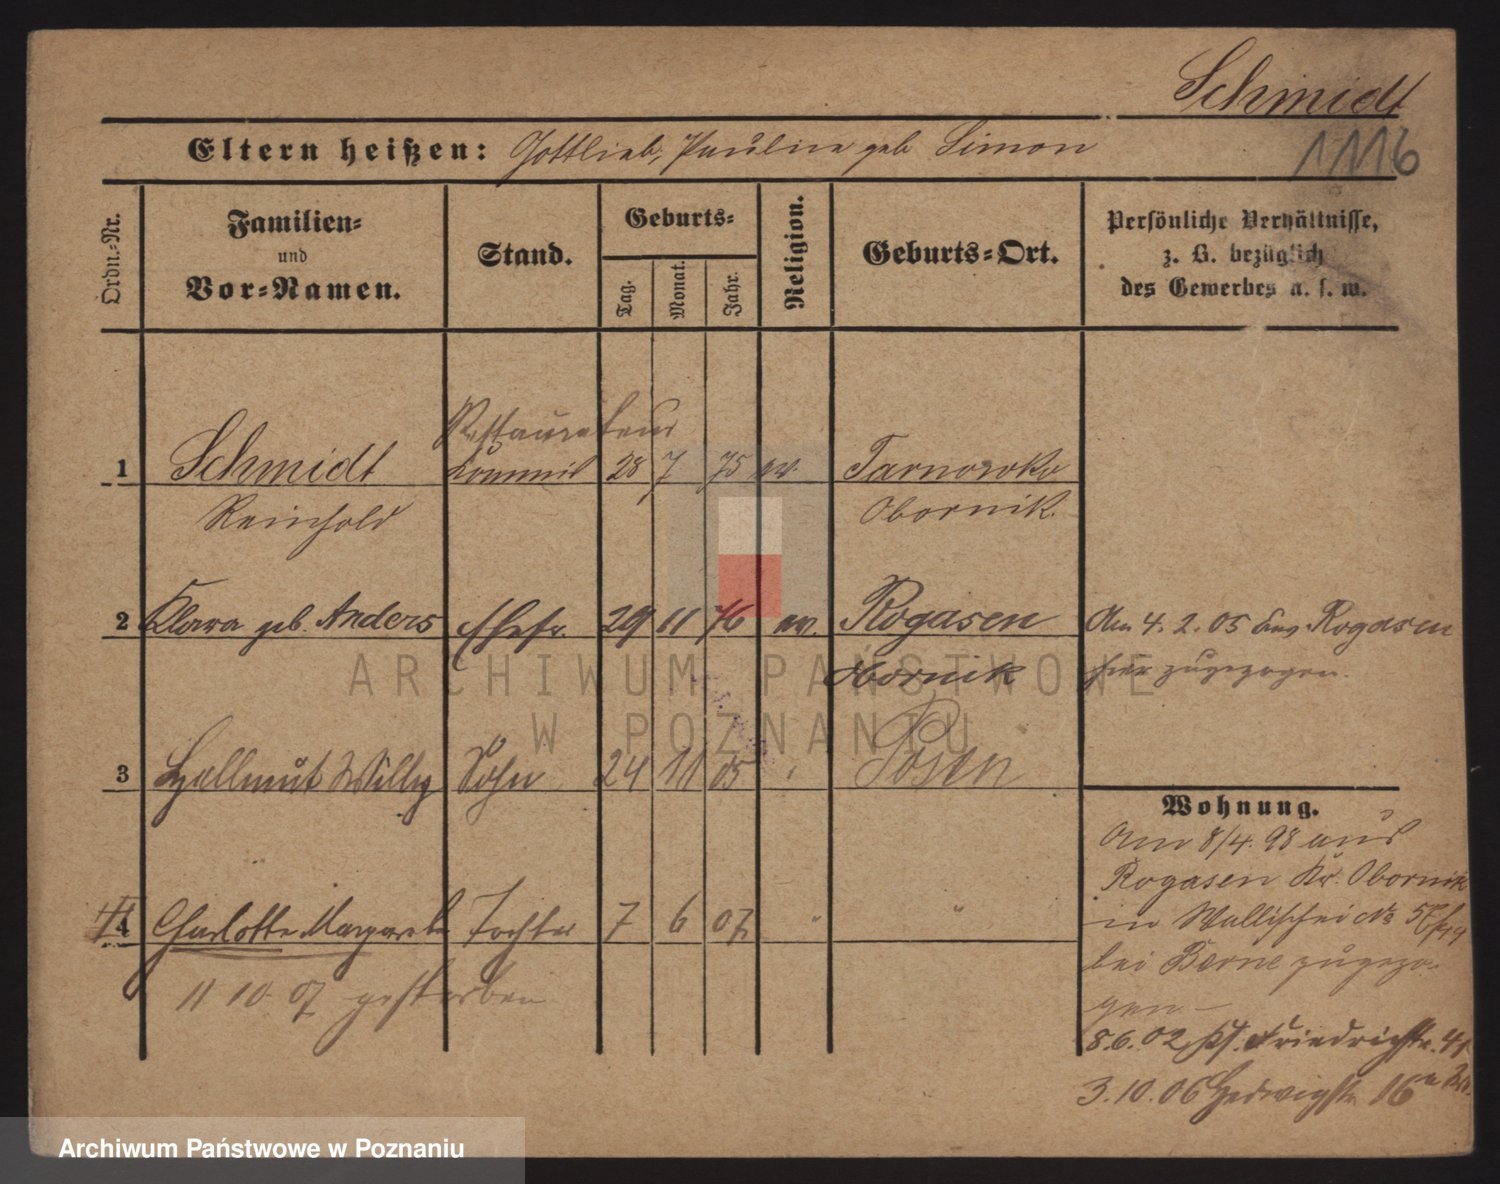 Schmidt
1116
Eltern heißen: Gottlieb, Pauline geb Simon
Ordn.-Nr.
Familien-
und
Vor-Namen.
Stand.
Geburts-
Tag.
Monat.
Jahr.
Religion.
Geburts-Ort.
Persönliche Verhältnisse,
z. B. bezüglich
des Gewerbes u. s. w.
Restaurateur
1 Schmidt Kommis 28 7 75 ev. Tarnowko
Reinhold Obornik.
2 Klara geb. Anders Ehefr. 29 11 76 ev. Rogasen Am 4. 2. 05 aus Rogasen
Obornik hier zugezogen.
3 Hellmut Willy Sohn 24 11 05 Posen
4 Charlotte Margarete Tochter 7 6 07 " "
11 10. 07 gestorben
Wohnung.
Am 8/4. 98 aus
Rogasen Kr. Obornik
in Wallischei No
bei Berne zugezo-
gen
8.6.02 Friedrichstr.
3.10.06 Hedwigstr. 16
ARCHIWUM PAŃSTWOWE
W POZNANIU
Archiwum Państwowe w Poznaniu